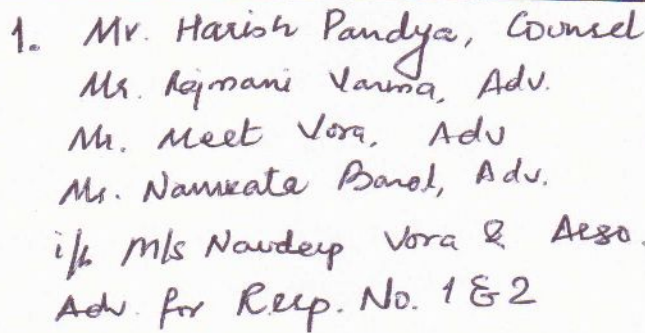 1. Mr. Harish Pandya, Counsel
Mr. Rajmani Varma, Adv.
Mr. Meet Vora, Adv
Ms. Namrata Barot, Adv.
i/b M/s Navdeep Vora & Asso.
Adv. for Resp. No. 1 & 2